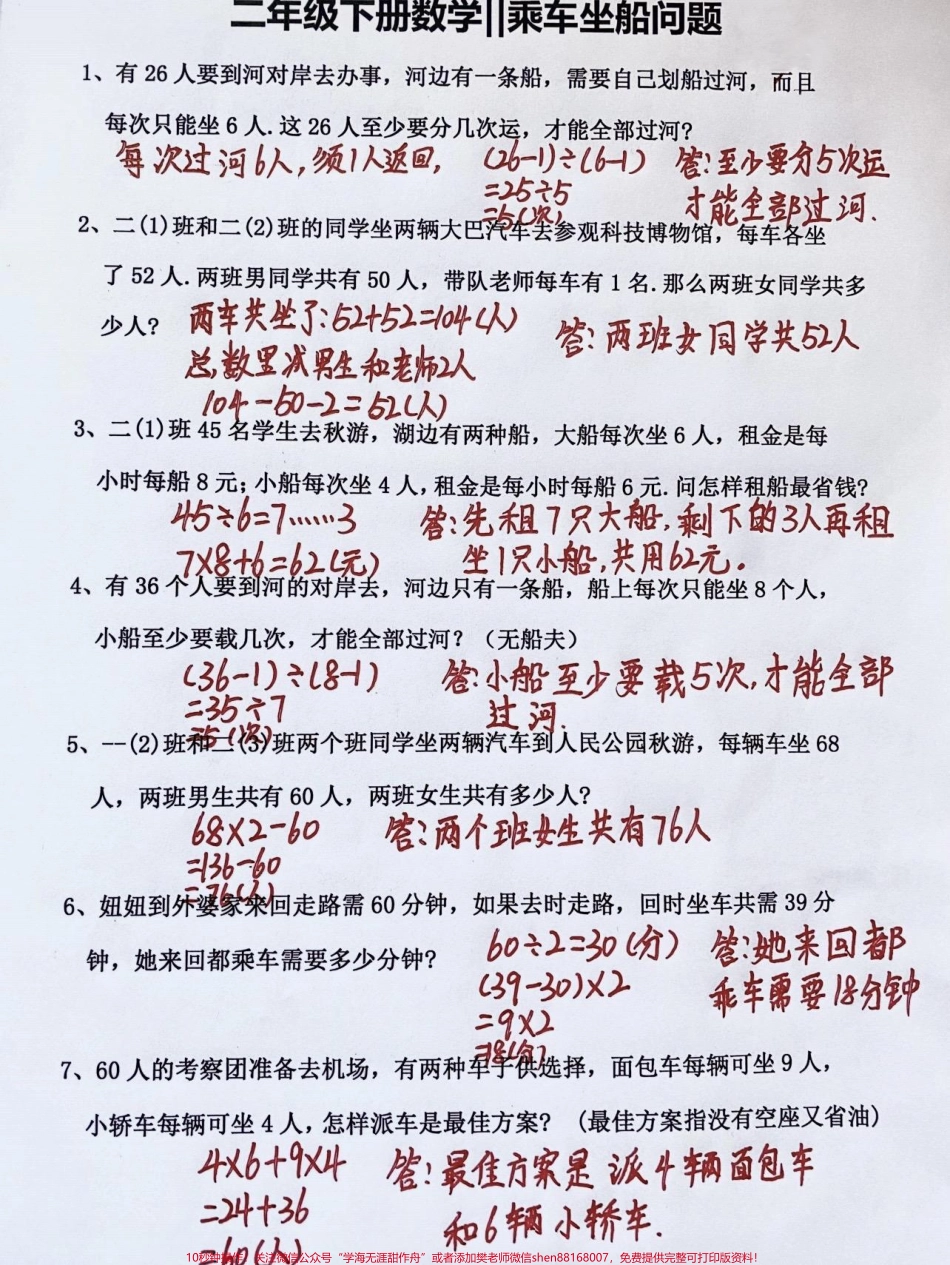 二年级下册数学||乘车坐船问题
1、有 26 人要到河对岸去办事，河边有一条船，需要自己划船过河，而且
每次只能坐 6 人.这 26 人至少要分几次运，才能全部过河?
每次过河6人,须1人返回, (26-1)÷(6-1) 答:至少要分5次运
=25÷5
=5(次) 才能全部过河.
2、二(1)班和二(2)班的同学坐两辆大巴汽车去参观科技博物馆，每车各坐
了 52 人.两班男同学共有 50 人，带队老师每车有 1 名.那么两班女同学共多
少人? 两车共坐了:52+52=104(人) 答:两班女同学共52人
总数里减男生和老师2人
104-50-2=52(人)
3、二(1)班 45 名学生去秋游，湖边有两种船，大船每次坐 6 人，租金是每
小时每船 8 元；小船每次坐 4 人，租金是每小时每船 6 元.问怎样租船最省钱?
45÷6=7……3 答:先租7只大船,剩下的3人再租
7×8+6=62(元) 坐1只小船,共用62元。
4、有 36 个人要到河的对岸去，河边只有一条船，船上每次只能坐 8 个人，
小船至少要载几次，才能全部过河？（无船夫）
(36-1)÷(8-1) 答:小船至少要载5次,才能全部
=35÷7 过河.
=5(次)
5、--(2)班和二(3)班两个班同学坐两辆汽车到人民公园秋游，每辆车坐 68
人，两班男生共有 60 人，两班女生共有多少人?
68×2-60 答:两个班女生共有76人
=136-60
=76(人)
6、妞妞到外婆家来回走路需 60 分钟，如果去时走路，回时坐车共需 39 分
钟，她来回都乘车需要多少分钟? 60÷2=30(分) 答:她来回都
(39-30)×2 乘车需要18分钟
=9×2
=18(分)
7、60 人的考察团准备去机场，有两种车子供选择，面包车每辆可坐 9 人，
小轿车每辆可坐 4 人，怎样派车是最佳方案? （最佳方案指没有空座又省油)
4×6+9×4 答:最佳方案是派4辆面包车
=24+36 和6辆小轿车.
=60(人)
关注微信公众号“学海无涯甜作舟”或者添加樊老师微信shen88168007，免费提供完整可打印版资料！